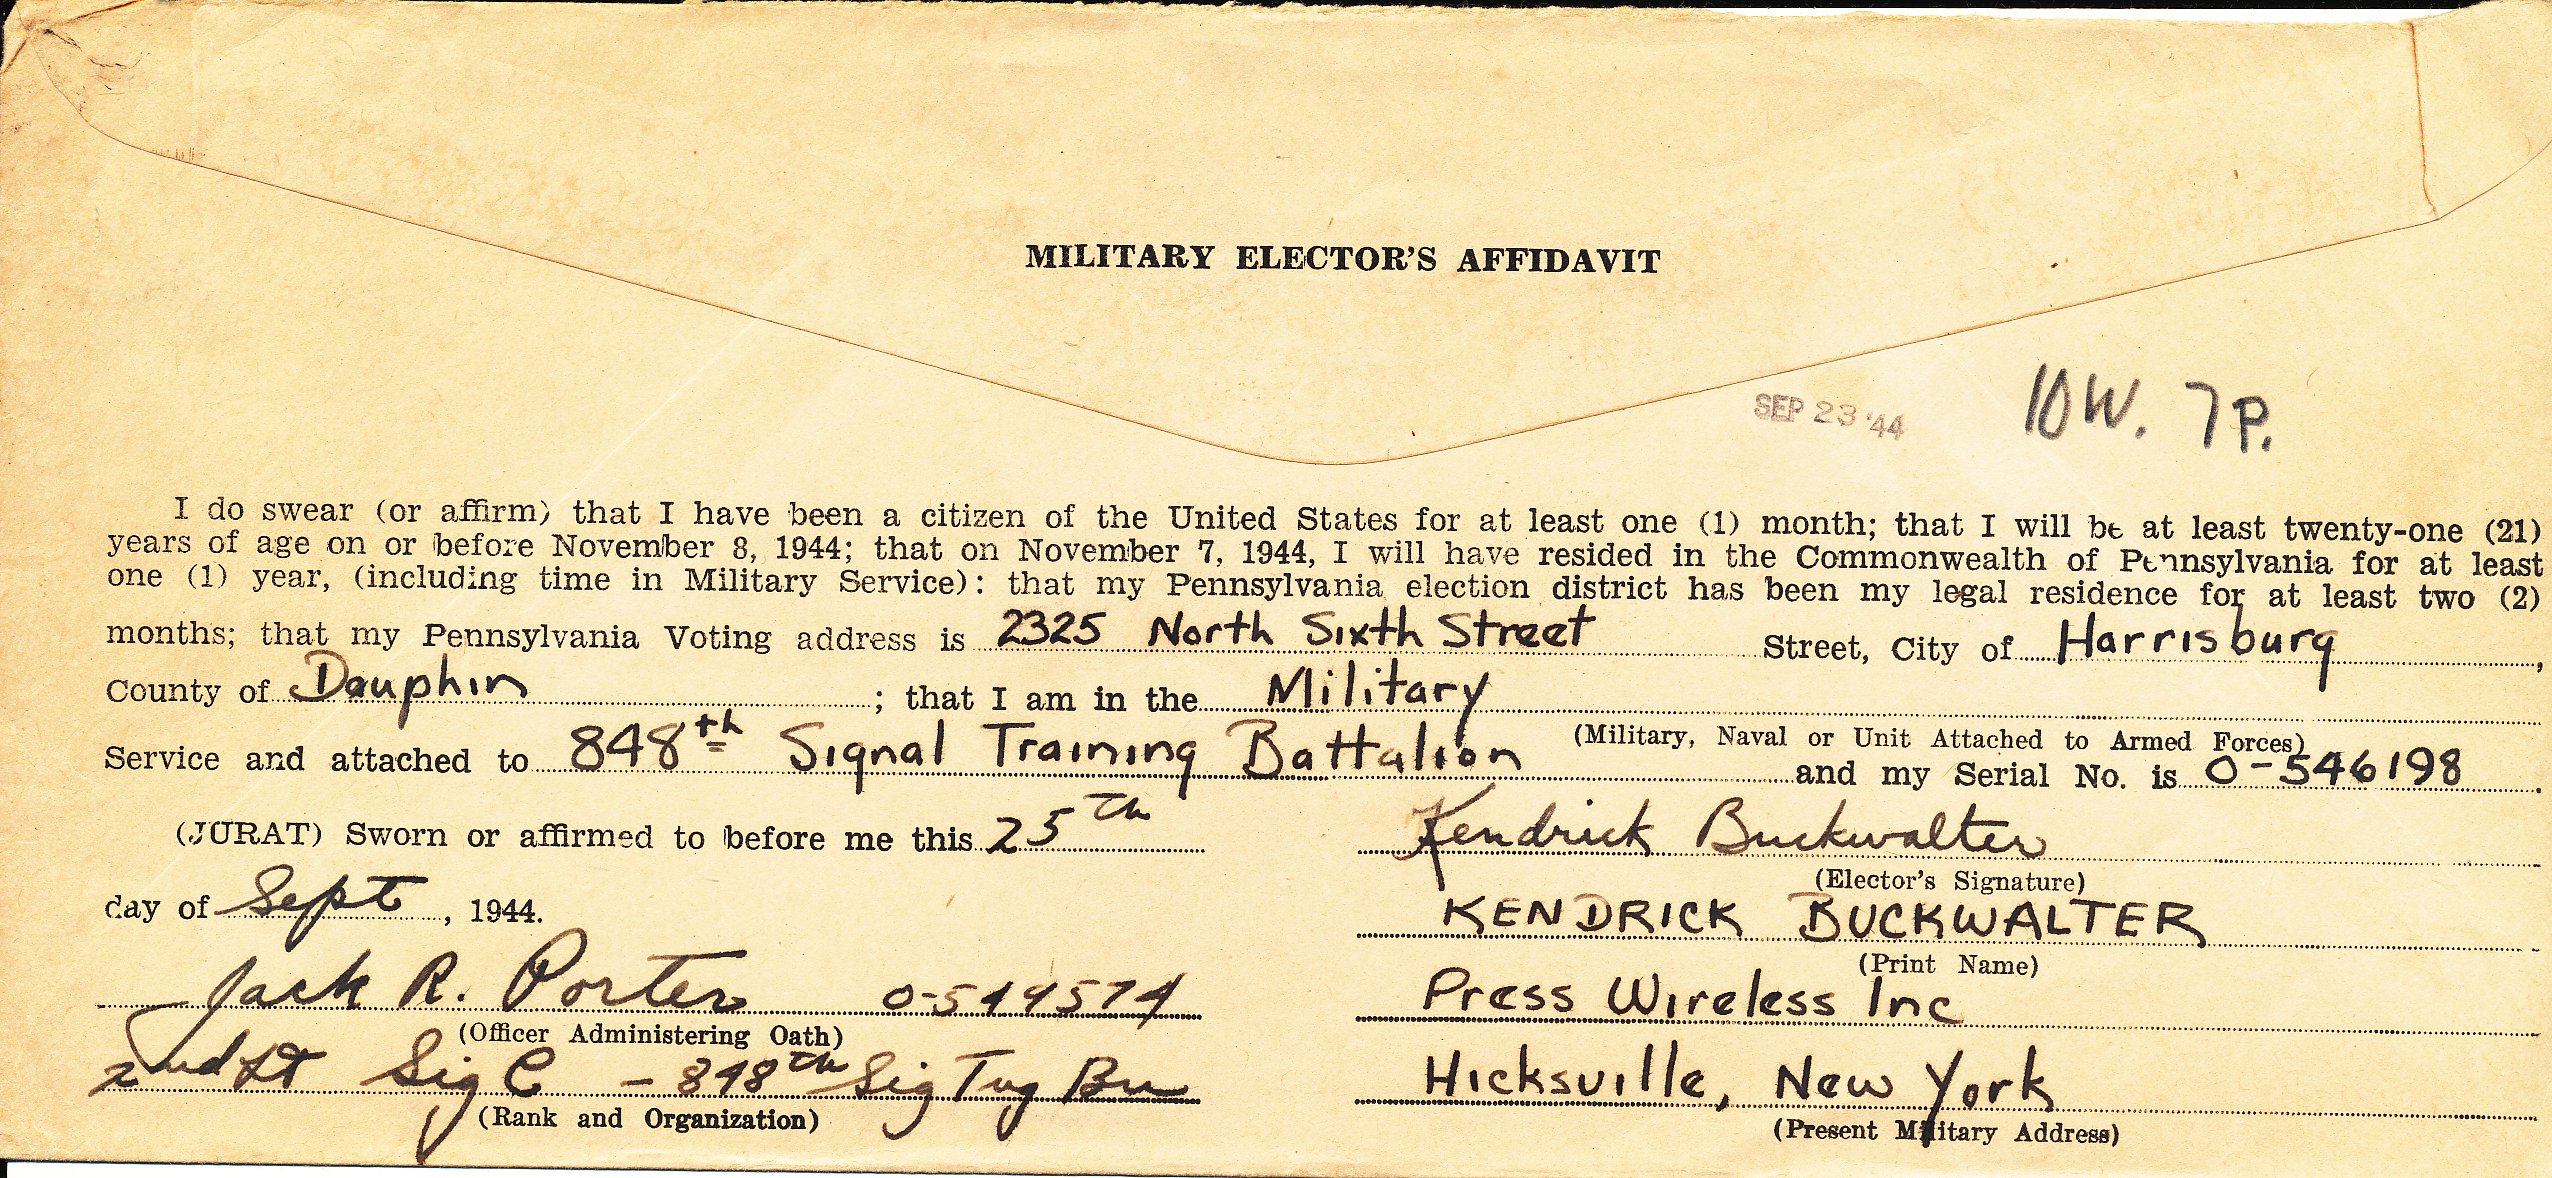 MILITARY ELECTOR'S AFFIDAVIT
SEP 23 '44
10 W. 7 P.
I do swear (or affirm) that I have been a citizen of the United States for at least one (1) month; that I will be at least twenty-one (21)
years of age on or before November 8, 1944; that on November 7, 1944, I will have resided in the Commonwealth of Pennsylvania for at least
one (1) year, (including time in Military Service): that my Pennsylvania election district has been my legal residence for at least two (2)
months; that my Pennsylvania Voting address is 2325 North Sixth Street Street, City of Harrisburg,
County of Dauphin ; that I am in the Military
(Military, Naval or Unit Attached to Armed Forces)
Service and attached to 848th Signal Training Battalion and my Serial No. is O-546198.
(JURAT) Sworn or affirmed to before me this 25th
day of Sept, 1944.
Jack R. Porter O-544574
(Officer Administering Oath)
2nd Lt Sig C - 848th Sig Tng Bn
(Rank and Organization)
Kendrick Buckwalter
(Elector's Signature)
KENDRICK BUCKWALTER
(Print Name)
Press Wireless Inc
Hicksville, New York
(Present Military Address)